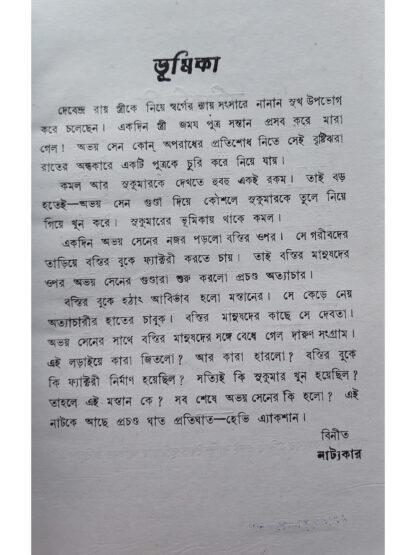 ভূমিকা
দেবেন্দ্র রায় স্ত্রীকে নিয়ে স্বর্গের ন্যায় সংসারে নানান সুখ উপভোগ
করে চলেছেন। একদিন স্ত্রী জমজ পুত্র সন্তান প্রসব করে মারা
গেল! অভয় সেন কোন্ অপরাধের প্রতিশোধ নিতে সেই বৃষ্টিঝরা
রাতের অন্ধকারে একটি পুত্রকে চুরি করে নিয়ে যায়।
কমল আর সুকুমারকে দেখতে হুবহু একই রকম। তাই বড়
হতেই—অভয় সেন গুণ্ডা দিয়ে কৌশলে সুকুমারকে তুলে নিয়ে
গিয়ে খুন করে। সুকুমারের ভূমিকায় থাকে কমল।
একদিন অভয় সেনের নজর পড়লো বস্তির ওপর। সে গরীবদের
তাড়িয়ে বস্তির বুকে ফ্যাক্টরী করতে চায়। তাই বস্তির মানুষদের
ওপর অভয় সেনের গুণ্ডারা শুরু করলো প্রচণ্ড অত্যাচার।
বস্তির বুকে হঠাৎ আবির্ভাব হলো মস্তানের। সে কেড়ে নেয়
অত্যাচারীর হাতের চাবুক। বস্তির মানুষদের কাছে সে দেবতা।
অভয় সেনের সাথে বস্তির মানুষদের সঙ্গে বেধে গেল দারুণ সংগ্রাম।
এই লড়াইয়ে কারা জিতলো? আর কারা হারলো? বস্তির বুকে
কি ফ্যাক্টরী নির্মাণ হয়েছিল? সত্যিই কি সুকুমার খুন হয়েছিল?
তাহলে এই মস্তান কে? সব শেষে অভয় সেনের কি হলো? এই
নাটকে আছে প্রচণ্ড ঘাত প্রতিঘাত—হেভি এ্যাকশান।
বিনীত
নাট্যকার